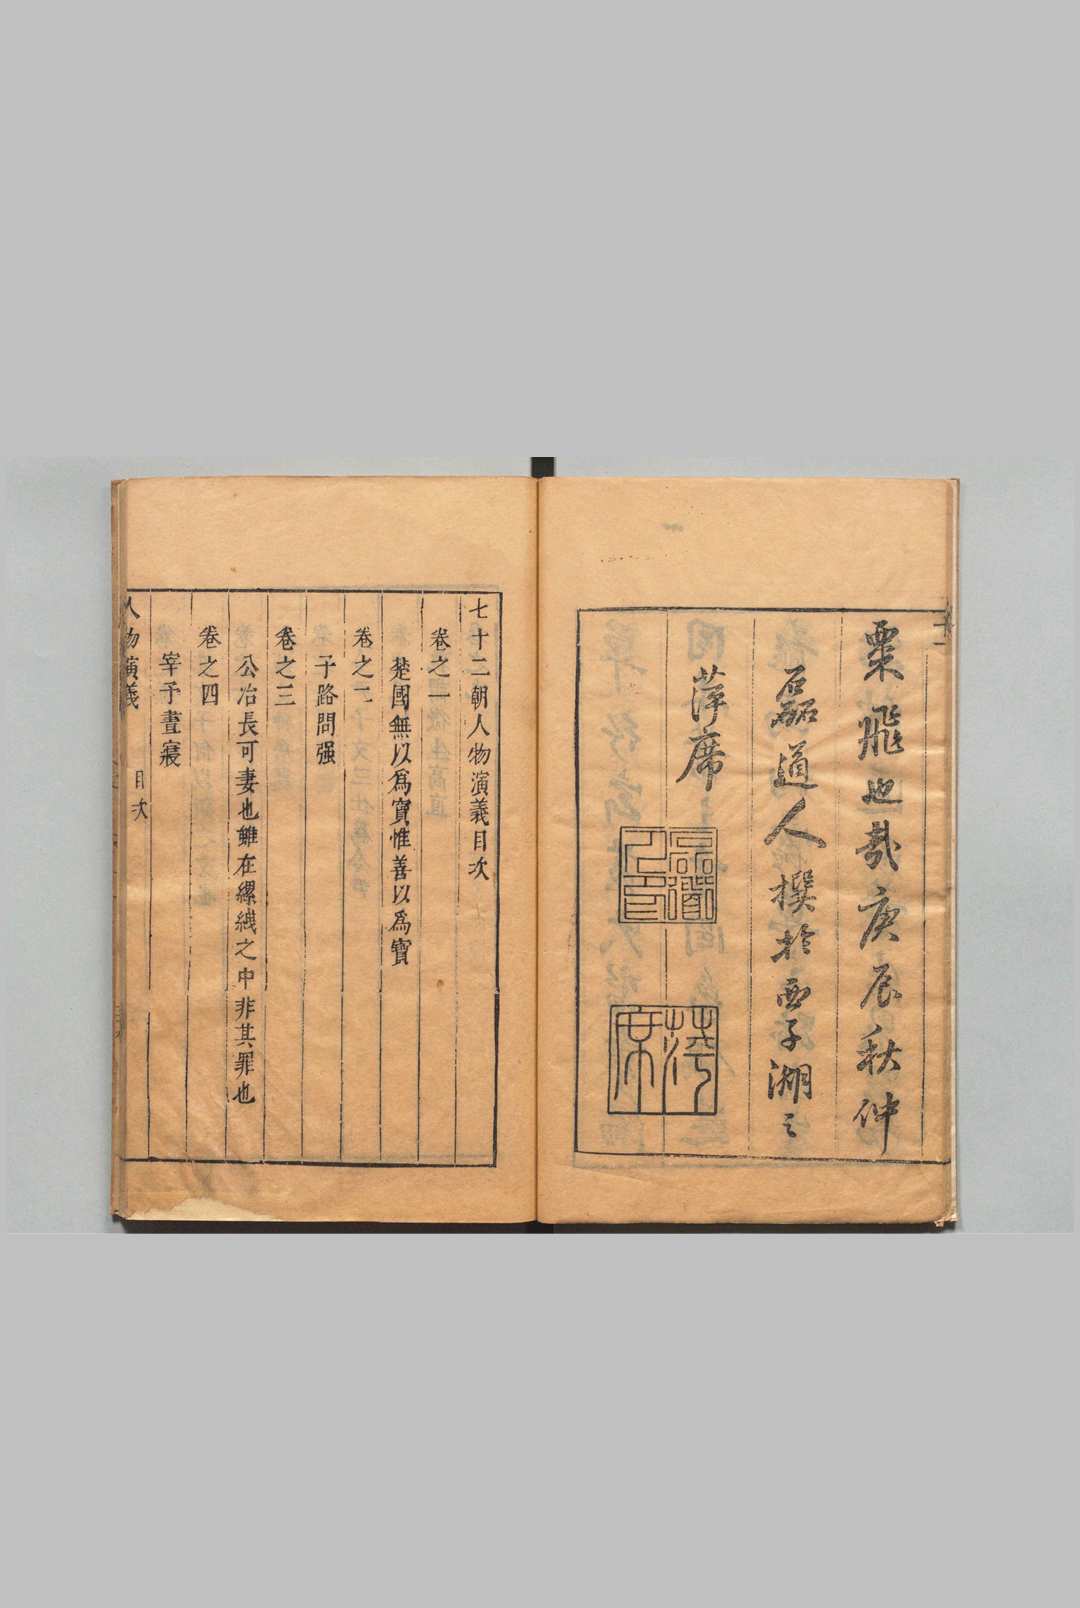 粟飛也哉庚辰秋仲
磊道人撰於西子湖之
萍席
磊道人印
萍席
七十二朝人物演義目次
卷之一
楚國無以爲寶惟善以爲寶
卷之二
子路問强
卷之三
公冶長可妻也雖在縲絏之中非其罪也
卷之四
宰予晝寢
人物演義 目次